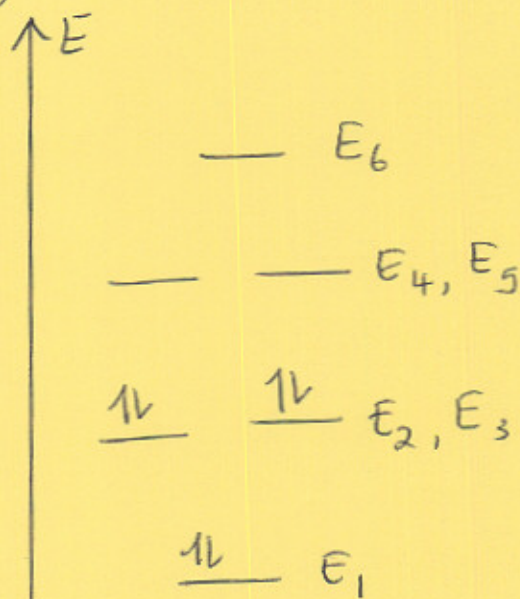 E
E₆
E₄, E₅
⥮ ⥮ E₂, E₃
⥮ E₁